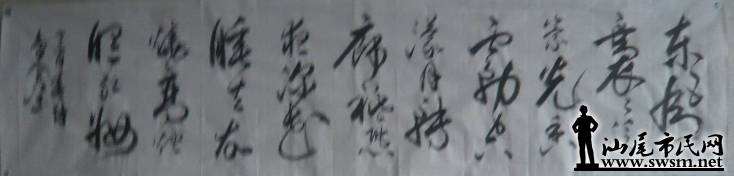 东风
袅袅泛
崇光香
雾空
濛月转
廊祗恐
夜深花
睡去故
烧高烛
照红妆
汕尾市民网
www.swsm.net